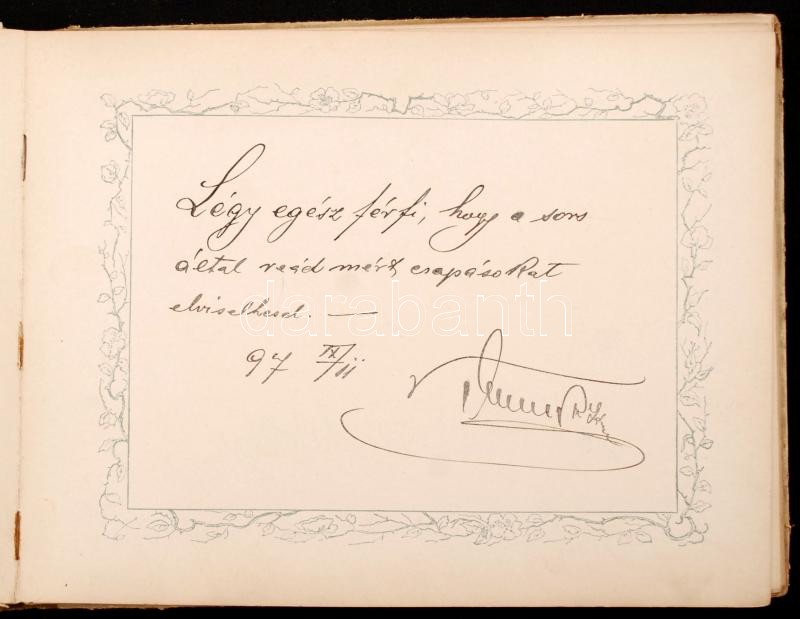 Légy egész férfi, hogy a sors
által reád mért csapásokat
elviselhesd. —
97 IX/11
darabanth